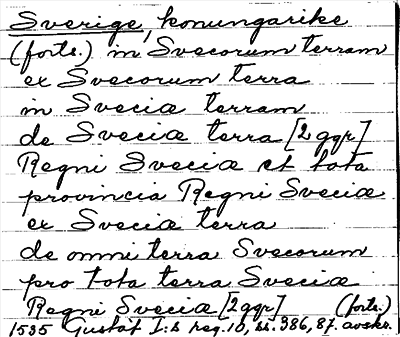 Sverige, konungarike
(forts.) in Svecorum terram
ex Svecorum terra
in Sveciæ terram
de Sveciæ terra [2 ggr]
Regni Sveciæ et tota
provincia Regni Sveciæ
ex Sveciæ terra
de omni terra Svecorum
pro tota terra Sveciæ
Regni Sveciæ [2 ggr] (forts.)
1535 Gustaf I:s reg. 10, ss. 386, 87. avskr.